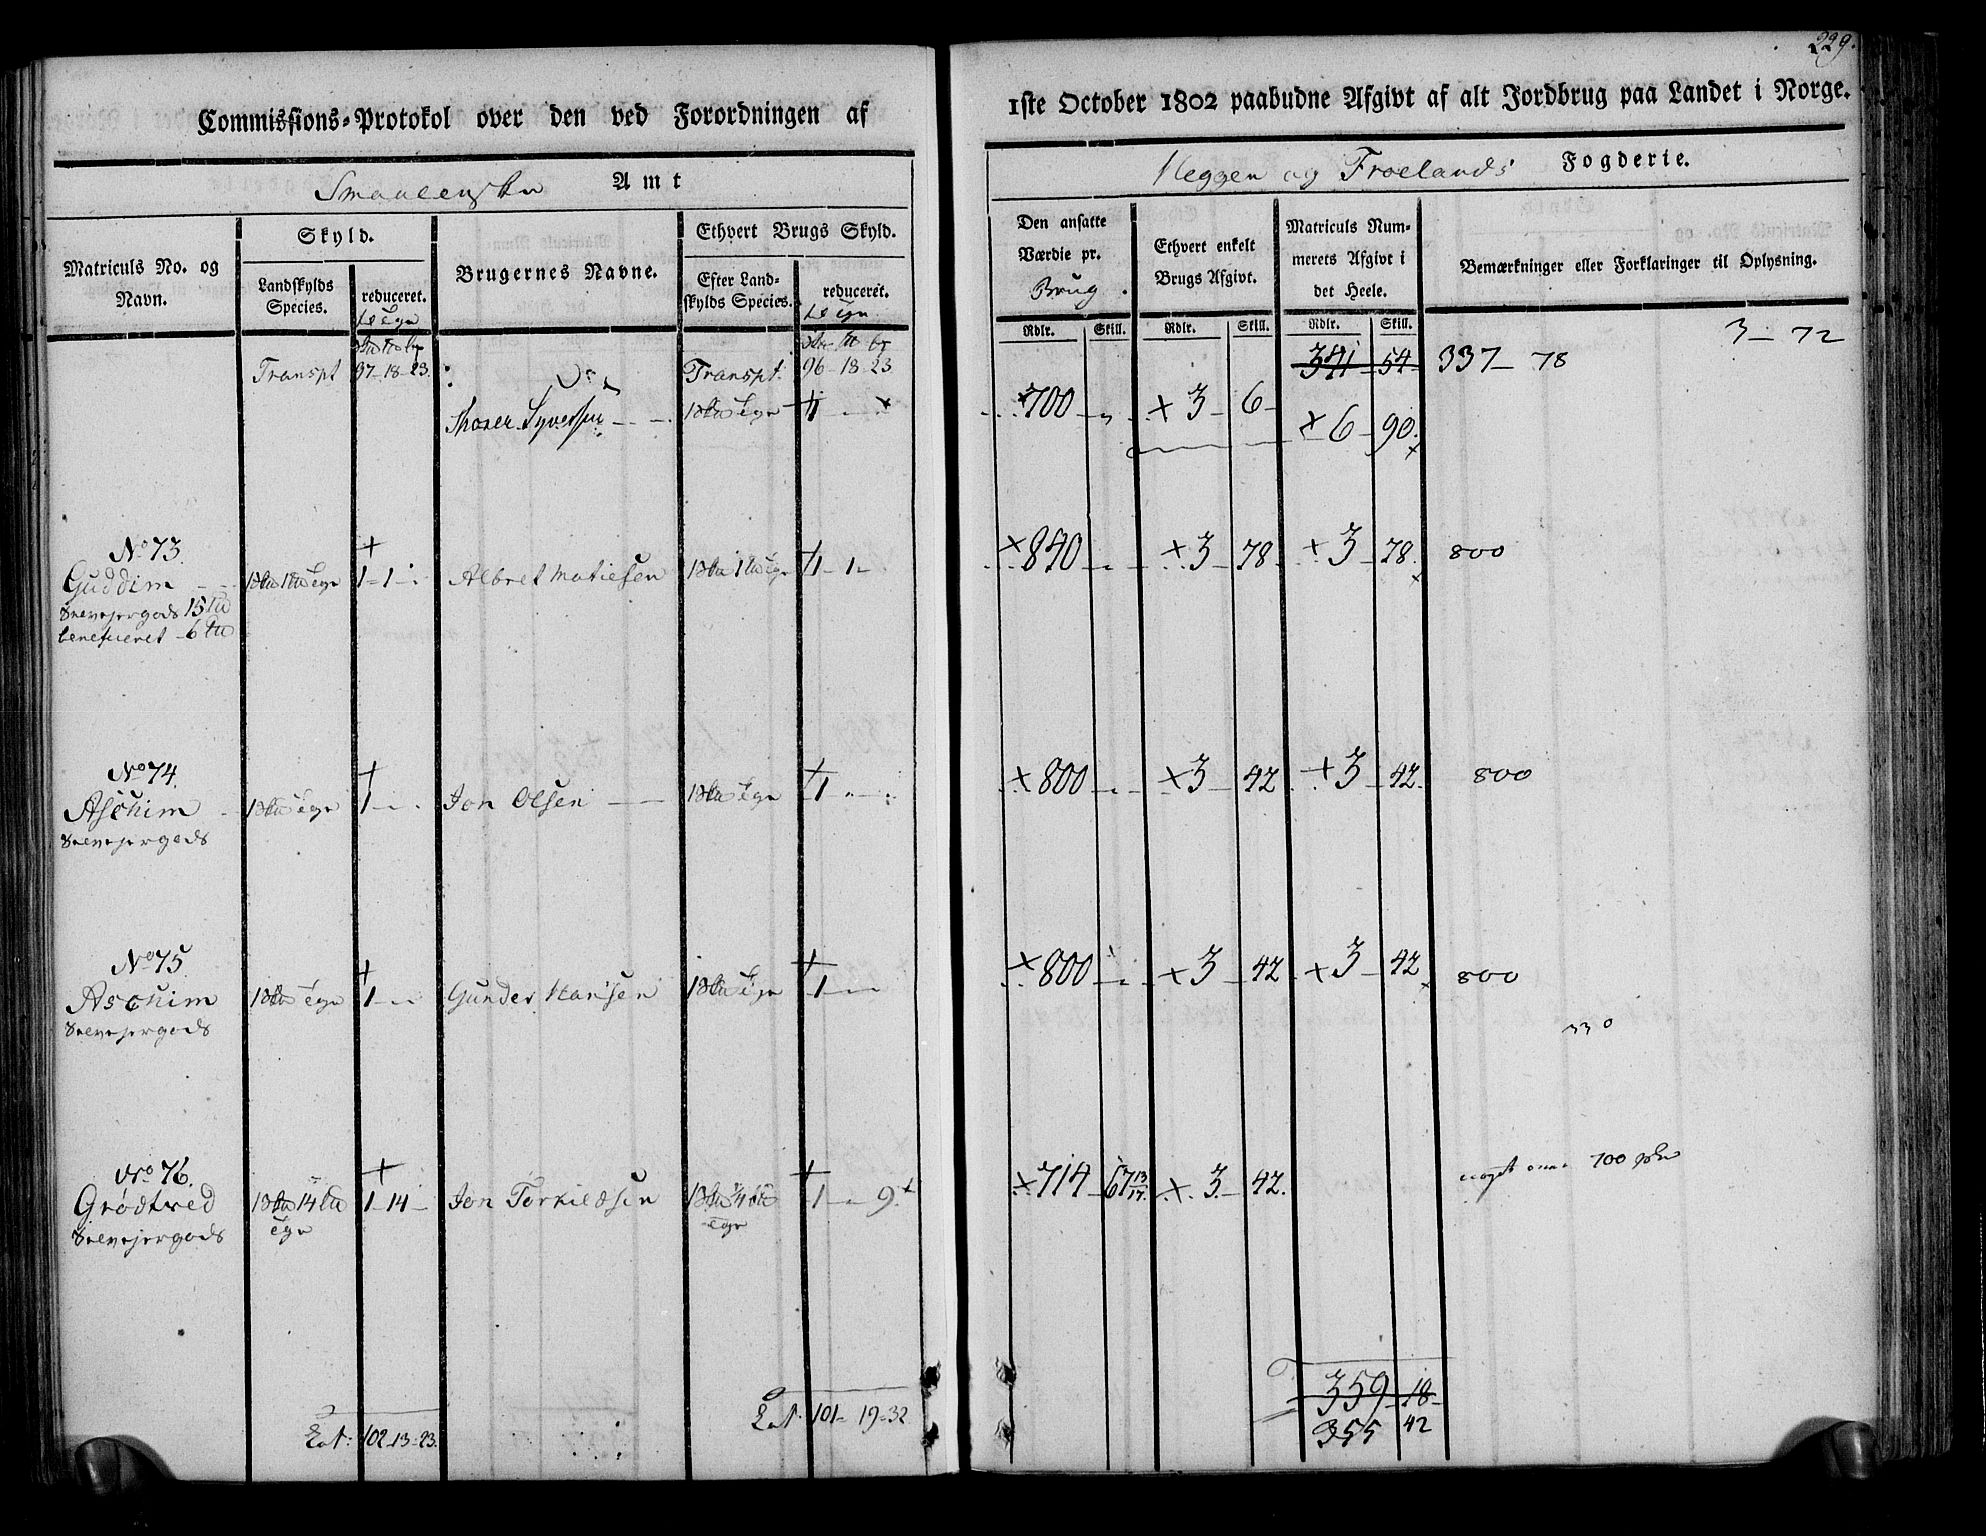 229.
Commissions-Protokol over den ved Forordningen af
1ste October 1802 paabudne Afgivt af alt Jordbrug paa Landet i Norge.
Smaalenske Amt
Heggen og Froelands Fogderie.
Matriculs No. og Navn.
Skyld.
Landskylds Species.
reduceret.
Brugernes Navne.
Ethvert Brugs Skyld.
Efter Landskylds Species.
reduceret.
Den ansatte Værdie pr. Brug.
Ethvert enkelt Brugs Afgivt.
Matriculs Nummerets Afgivt i det Heele.
Bemærkninger eller Forklaringer til Oplysning.
Rdlr. Skill. Rdlr. Skill. Rdlr. Skill.
3 - 72
Transpt 97-18-23. Transpt. 96-18-23 341 54 337 - 78
700 3 6
6 90
No 73.
Guddim 1-1 Albret Matiesen 1-1 840 3 78 3 78 800
15
beneficeret 6
No 74.
Aschim 1 Jon Olsen 1 800 3 42 3 42 800
No 75
Aschim 1 Gunder Hansen 1 800 3 42 3 42 800
No 76.
Grödtved 1-14 Jon Torkildsen 1 9 714 67 13/17 3 42 700
Lat: 102-13-23. Lat. 101-19-32 359 18
355 42